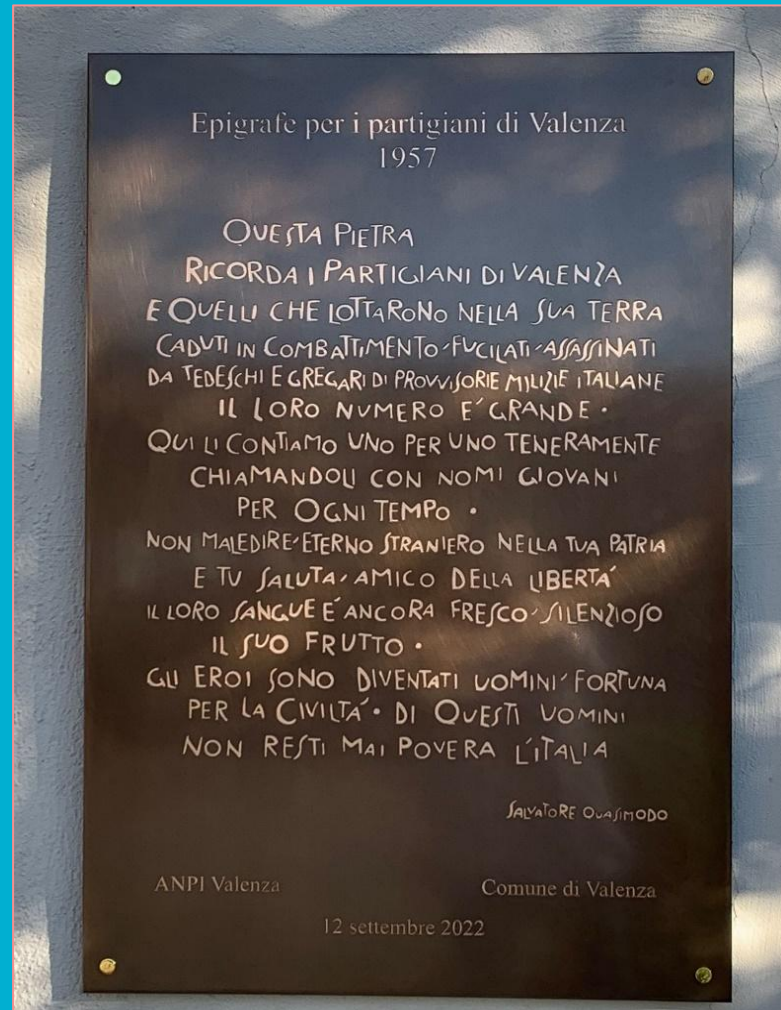 Epigrafe per i partigiani di Valenza
1957
QUESTA PIETRA
RICORDA I PARTIGIANI DI VALENZA
E QUELLI CHE LOTTARONO NELLA SUA TERRA
CADUTI IN COMBATTIMENTO ʹ FUCILATI ʹ ASSASSINATI
DA TEDESCHI E GREGARI DI PROVVISORIE MILIZIE ITALIANE
IL LORO NUMERO E' GRANDE ·
QUI LI CONTIAMO UNO PER UNO TENERAMENTE
CHIAMANDOLI CON NOMI GIOVANI
PER OGNI TEMPO ·
NON MALEDIRE ʹ ETERNO STRANIERO NELLA TUA PATRIA
E TU SALUTA ʹ AMICO DELLA LIBERTA'
IL LORO SANGUE E' ANCORA FRESCO ʹ SILENZIOSO
IL SUO FRUTTO ·
GLI EROI SONO DIVENTATI UOMINI ʹ FORTUNA
PER LA CIVILTA' · DI QUESTI UOMINI
NON RESTI MAI POVERA L'ITALIA
SALVATORE QUASIMODO
ANPI Valenza Comune di Valenza
12 settembre 2022